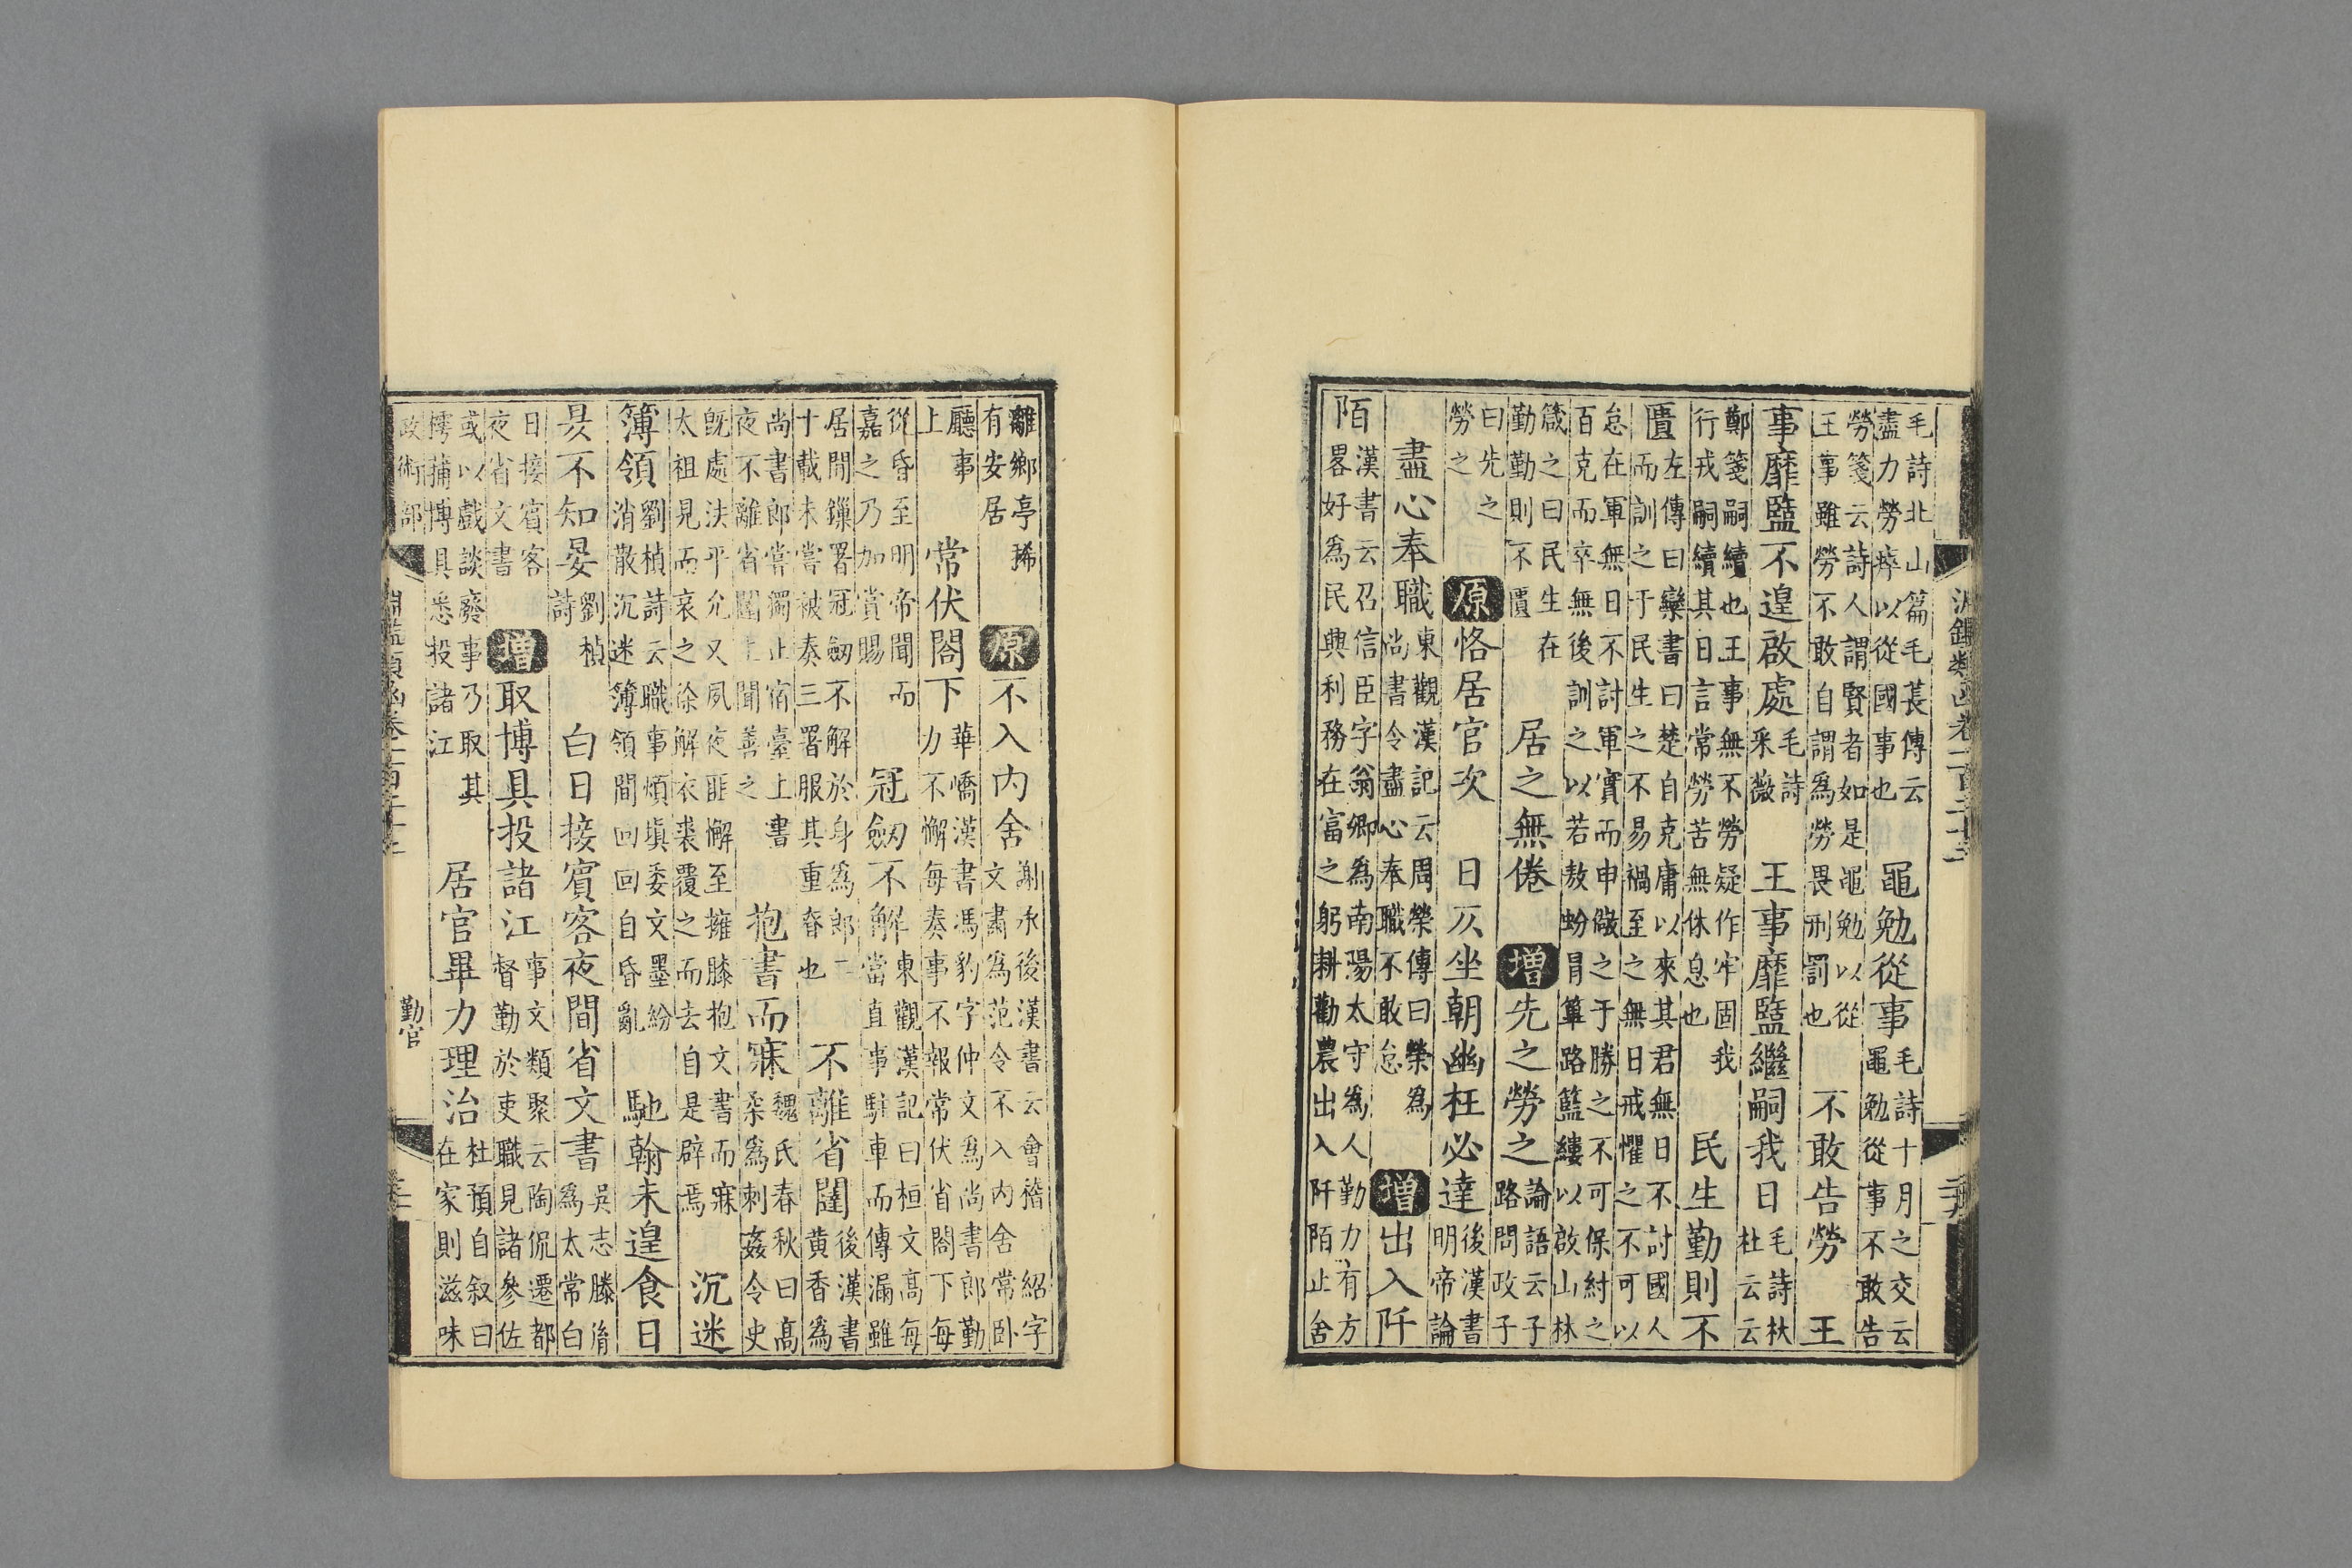 毛詩北山篇毛萇傳云盡力勞瘁以從國事也 黽勉從事毛詩十月之交云黽勉從事不敢告
勞箋云詩人謂賢者如是黽勉以從王事雖勞不敢自謂為勞畏刑罰也 不敢告勞 王
事靡盬不遑啟處毛詩采薇 王事靡盬繼嗣我日毛詩杕杜云云
鄭箋嗣續也王事無不勞疑作牢固我行戎嗣續其日言常勞苦無休息也 民生勤則不
匱左傳曰欒書曰楚自克庸以來其君無日不討國人而訓之于民生之不易禍至之無日戒懼之不可以
怠在軍無日不討軍實而申儆之于勝之不可保紂之百克而卒無後訓之以若敖蚡冒篳路籃縷以啟山林
箴之曰民生在勤勤則不匱 居之無倦 增先之勞之論語云子路問政子
曰先之勞之 原恪居官次 日仄坐朝幽枉必達後漢書明帝論
盡心奉職東觀漢記云周榮傳曰榮為尚書令盡心奉職不敢怠 增出入阡
陌漢書云召信臣字翁卿為南陽太守為人勤力有方畧好為民興利務在富之躬耕勸農出入阡陌止舍
離鄉亭稀有安居 原不入內舍謝承後漢書云會稽紹字文肅為范令不入內舍常卧
廳事上 常伏閤下華嶠漢書馮豹字仲文為尚書郎勤力不懈每奏事不報常伏省閤下每
從昏至明帝聞而嘉之乃加賞賜 冠劒不解東觀漢記曰桓文高每當直事駐車而傳漏雖
居閒鏁署冠劒不解於身為郎二十載未嘗被奏三署服其重眘也 不離省闥後漢書黃香為
尚書郎嘗獨止宿臺上書夜不離省闥上聞善之 抱書而寐魏氏春秋曰高柔為刺姦令史
旣處法平允又夙夜匪懈至擁膝抱文書而寐太祖見而哀之徐解衣裘覆之而去自是辟焉 沉迷
簿領劉楨詩云職事煩塡委文墨紛消散沉迷簿領間回回自昏亂 馳翰未遑食日
昃不知晏劉楨詩 白日接賓客夜間省文書吳志滕胤為太常白
日接賓客夜省文書 增取博具投諸江事文類聚云陶侃遷都督勤於吏職見諸參佐
或以戲談廢事乃取其樗捕博具悉投諸江 居官畢力理治杜預自叙曰在家則滋味
政術部 勤官